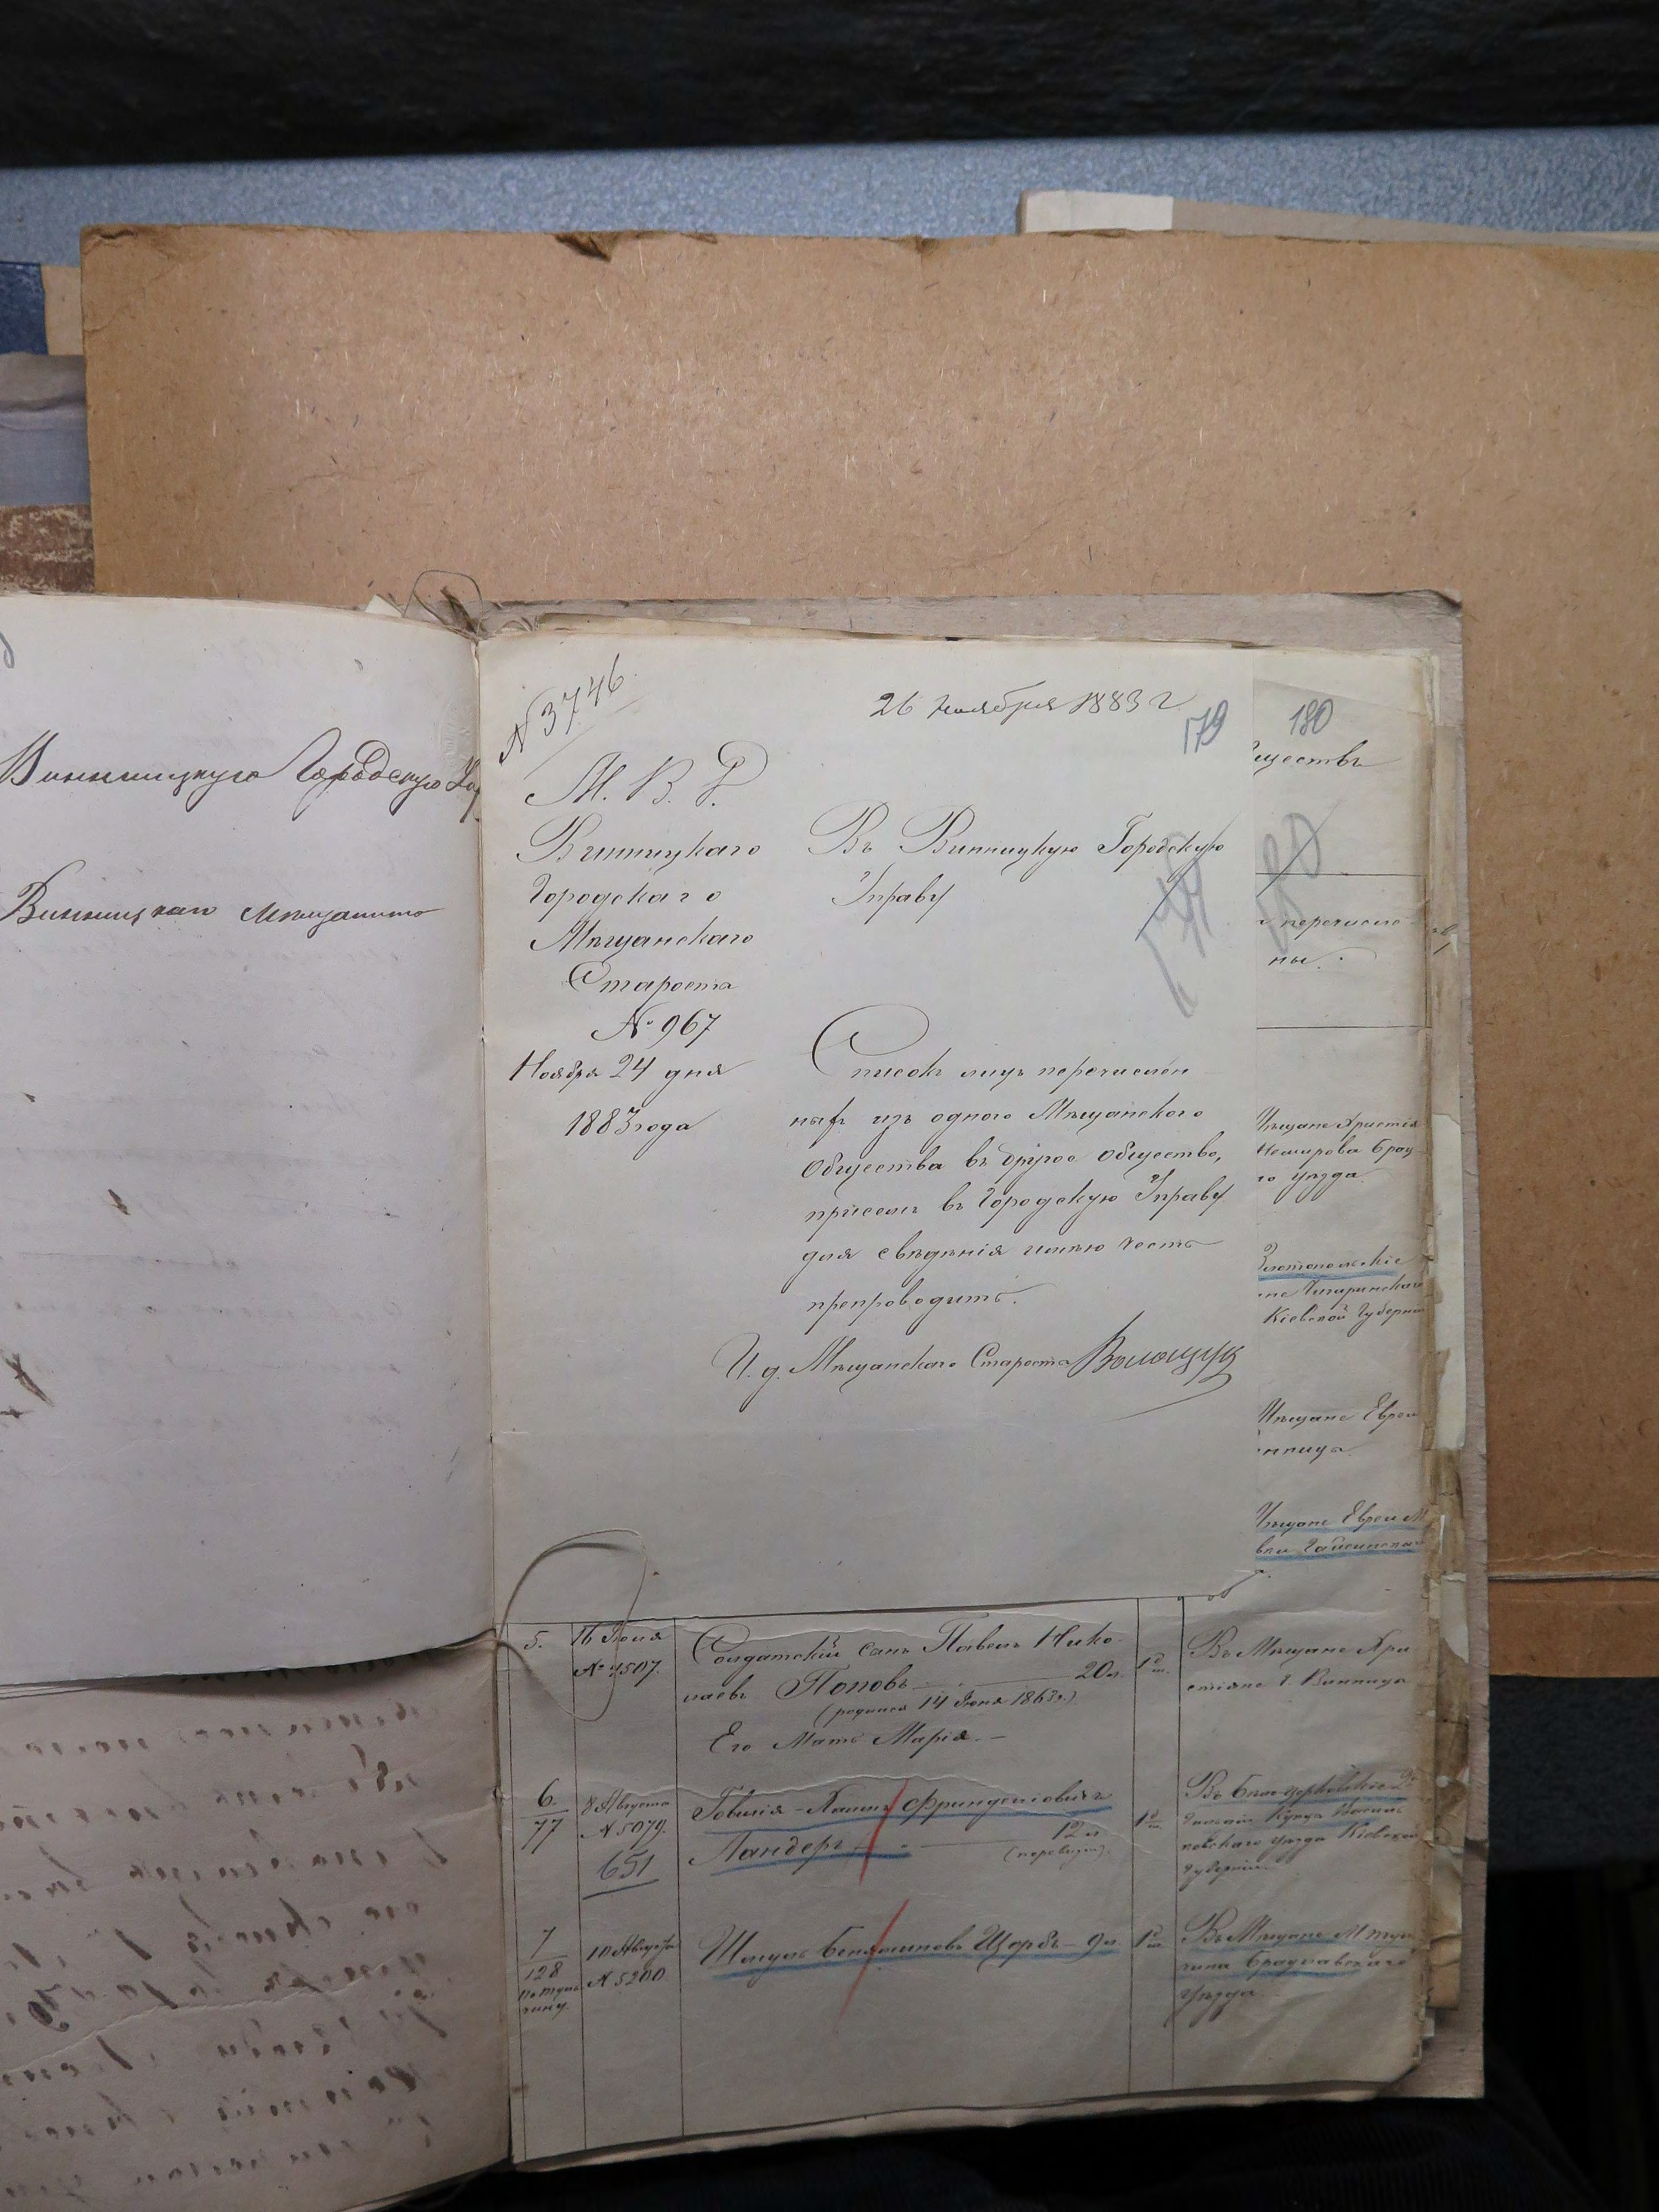 Винницкую Городскую
Винницкаго Мѣщанина
№ 3746.
26 Ноября 1883 г
179
М. В. Д.
Винницкаго
Городскаго
Мѣщанскаго
Староста
№ 967
Ноября 24 дня
1883 года
Въ Винницкую Городскую
Управу
Списокъ лицъ перечислен
ныхъ изъ одного Мѣщанскаго
Общества въ другое общество,
при семъ въ Городскую Управу
для свѣдѣнія имѣю честь
препроводить.
И. д. Мѣщанскаго Староста Волощук
180
ществъ
перечисле-
ны.
Мѣщане Христіа
Немирова Брац
го уѣзда.
Златопольскіе
не Чигиринскаго
Кіевской Губерни
Мѣщане Евреи
нница.
Мѣщане Евреи М
вки Гайсинска
5. 16 Іюля
№ 4507.
Солдатскій сынъ Павелъ Нико-
лаевъ Поповъ 20 л.
(родился 14 Іюня 1863 г.)
Его Мать Марія.
1 д.
Въ Мѣщане Хри
стіане г. Винница
6.
77
8 Августа
№ 5079.
651
Фринделіовичъ
Ландеръ 12 л
1 д.
Въ Бѣлоцерковскіе 2й
Гильдіи Купцы Василь
ковскаго уѣзда Кіевской
Губерніи.
7
128
по Туль
чину.
10 Августа
№ 5200.
Шмуль Беньяминовъ Щербъ 9 л
1 д.
Въ Мѣщане М Туль
чина Брацлавскаго
Уѣзда